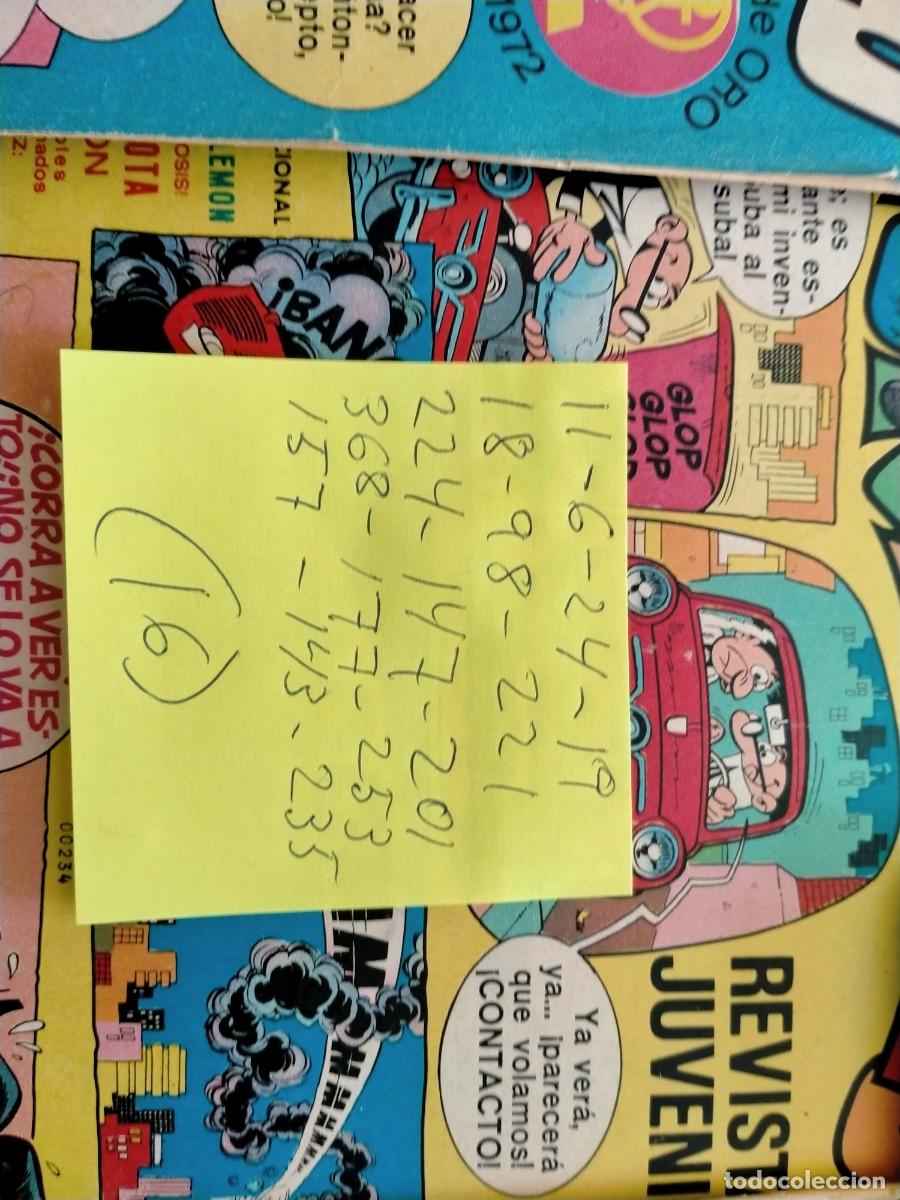 acer
a?
iton-
epto,
o!
1972
de ORO
OSIS!
OTA
LEMON
ON
CIONAL
ples
nados
Z:
; es
ante es-
mi inven-
uba al
suba!
¡BAN
GLOP
GLOP
GLOP
11-6-24-19
18-98-221
224-147-201
368-177-253
157-143-235
(16)
¡CORRA A VER ES-
TO!¡NO SE LO VA A
00234
Ya verá,
ya... ¡parecerá
que volamos!
¡CONTACTO!
REVIST
JUVENI
todocoleccion